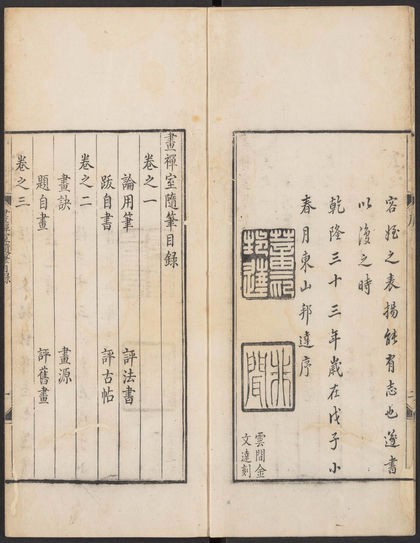 容姪之表揚能有志也遂書
以復之時
乾隆三十三年歲在戊子小
春月東山邦達序
董氏
邦達
雲間金
文達刻
畫禪室隨筆目錄
卷之一
論用筆 評法書
跋自書 評古帖
卷之二
畫訣 畫源
題自畫 評舊畫
卷之三